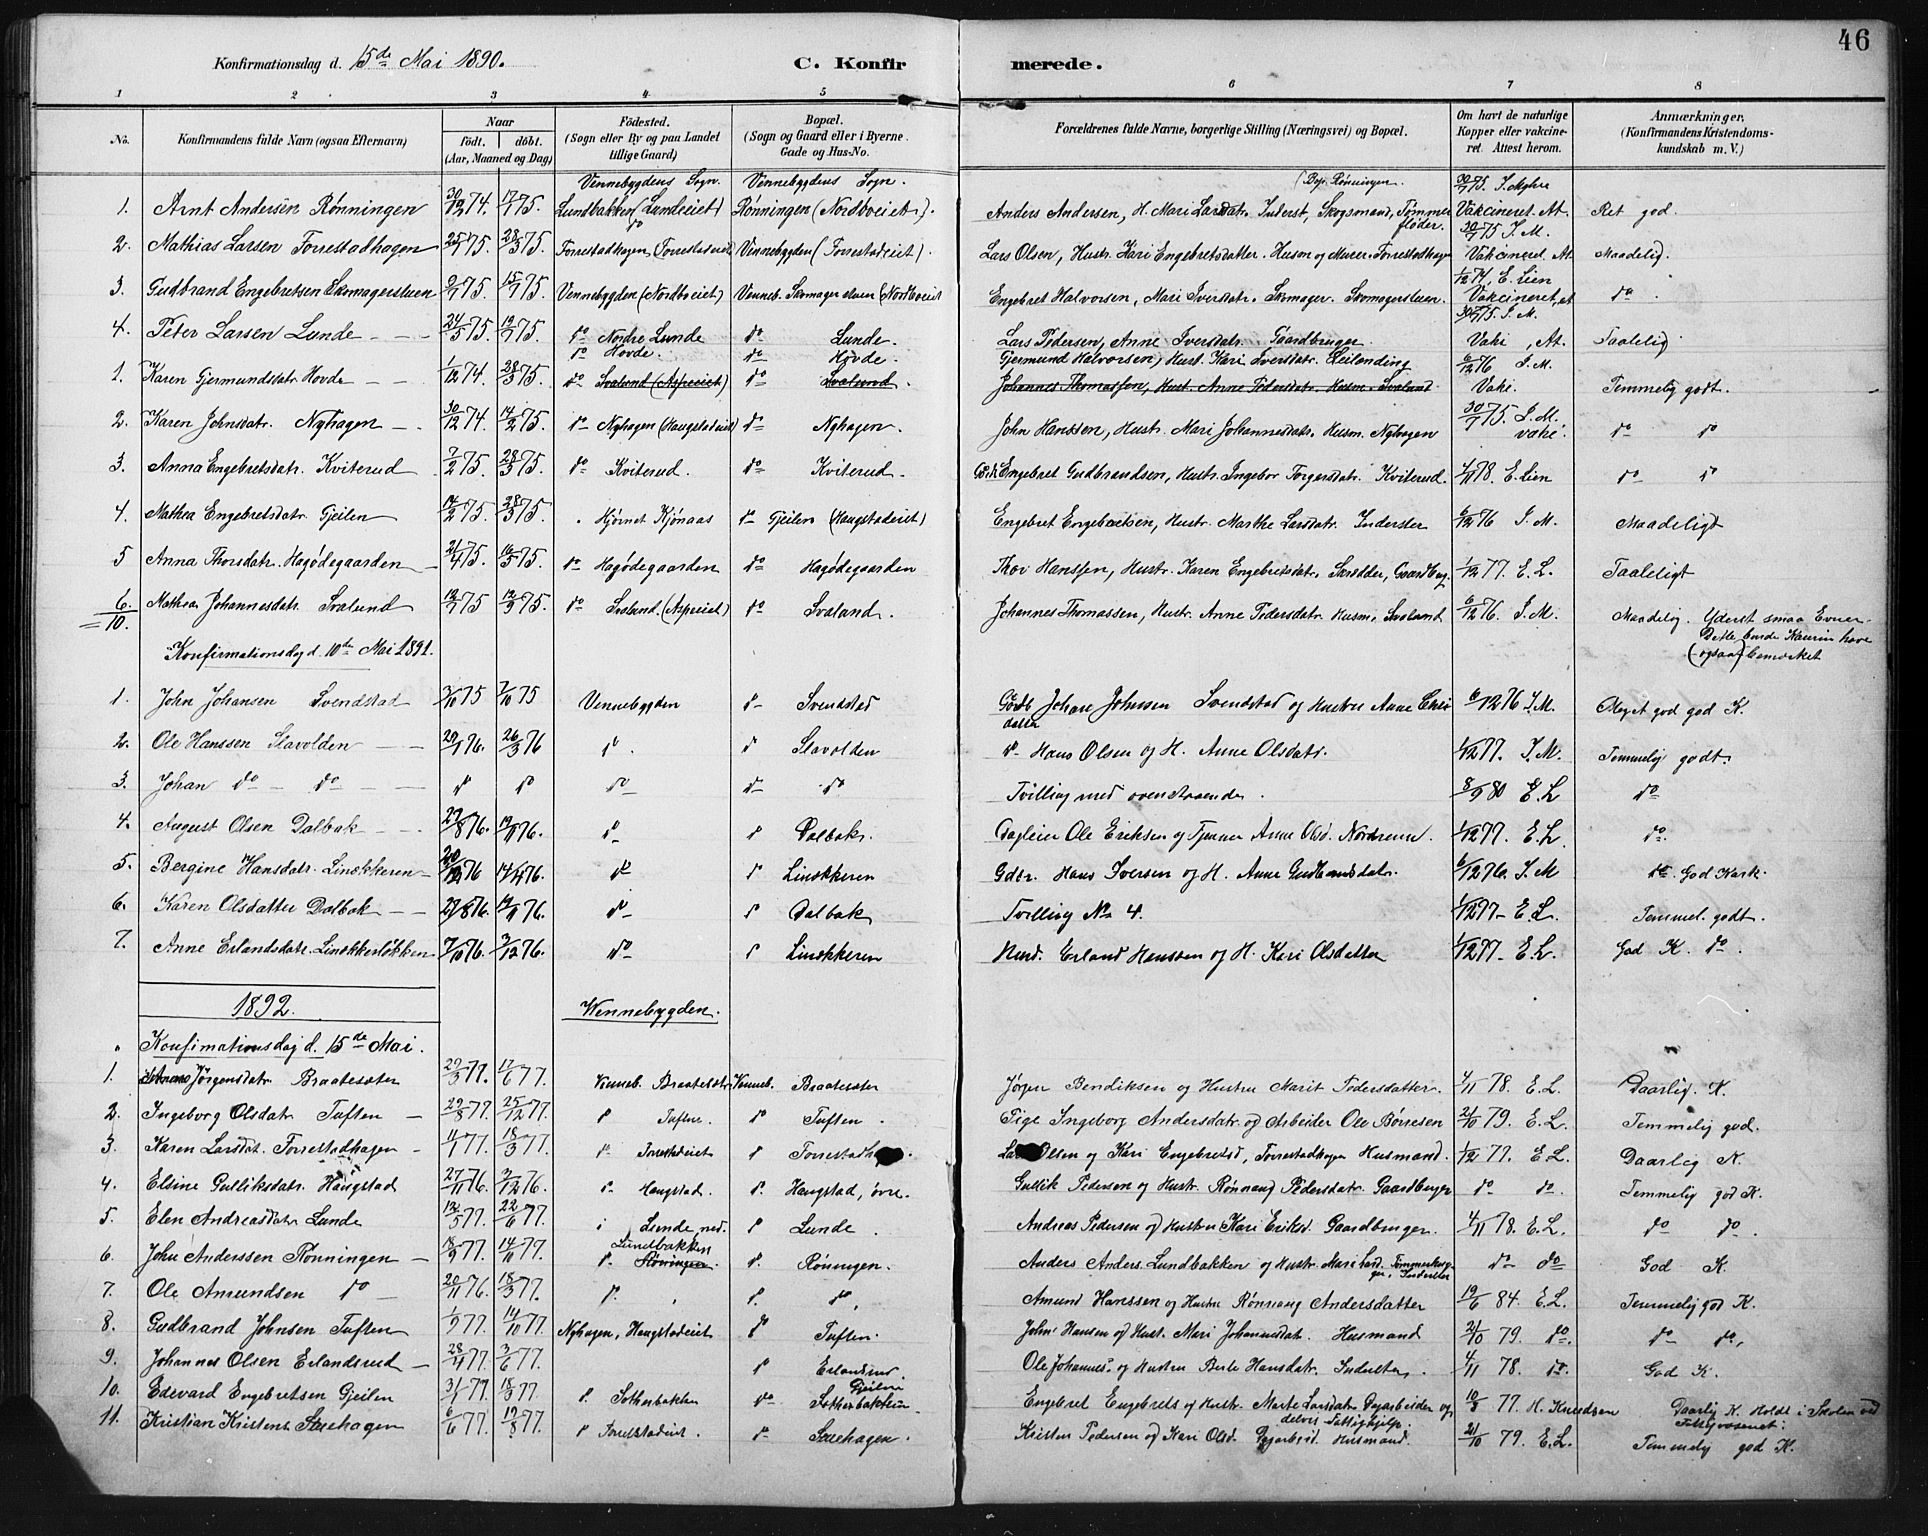 46
Konfirmationsdag d. 15de Mai 1890.
C. Konfirmerede.
1 2 3 4 5 6 7 8
No. | Konfirmandens fulde Navn (ogsaa Efternavn) | Naar født. døbt. (Aar, Maaned og Dag) | Fødested. (Sogn eller By og paa Landet tillige Gaard) | Bopæl. (Sogn og Gaard eller i Byerne Gade og Hus-No. | Forældrenes fulde Navne, borgerlige Stilling (Næringsvei) og Bopæl. | Om havt de naturlige Kopper eller vakcineret. Attest herom. | Anmærkninger. (Konfirmandens Kristendomskundskab m. V.)
Vennebygdens Sogn. Vennebygdens Sogn. (Bop. Rønningen. 30/7 75. J. Myhre
1. Arnt Andersen Rønningen 30/12 74. 17/1 75. Lundbakken (Lundeiet) Rønningen (Nordboeiet). Anders Andersen, H. Mari Larsdatr. Inderst, Skogsmand, Tømmerfløder. Vakcineret. At. Ret god.
2. Mathias Larsen Forrestadhagen 28/3 75. Forrestadhagen (Forrestadeiet) Vennebygden (Forrestadeiet). Lars Olsen, Hustr. Kari Engebretsdatter. Husm og Murer. Forrestadhagen 30/7 75 J. M. Vakcineret. At. Maadelig.
3. Gudbrand Engebretsen Skomagerstuen 15/7 75. Vennebygden (Nordboeiet) Venneb. Skomagerstuen (Nordboeiet Engebret Halvorsen, Mari Iversdatr. Skomager. Skomagerstuen. 1/12 74, E. Lien Vakcineret, at do
4. Peter Larsen Lunde 24/5 75. do Nordre Lunde do Lunde. Lars Pedersen, Anne Iversdatr. Gaardbruger 30/7 75. J. M. Vaki, At. Taalelig
1. Karen Gjermundsdatr Hovde 1/12 74. 28/3 75. do Hovde. do Hovde. Gjermund Halvorsen, Hust. Kari Iversdatr. Leilending 6/12 76 J. M. Vaki. Temmelig godt.
do Svalund (Aspeeiet) do Svalund. Johannes Thomassen, Hust. Anne Pedersdatr. Husm. Svalund
2. Karen Johnsdatr. Nyhagen 30/12 74. 14/2 75. do Nyhagen (Haugstadeiet) do Nyhagen. John Hanssen, Hustr. Mari Johannesdatr. Husm. Nyhagen 30/7 75. J. M. vaki. do do
3. Anna Engebretsdatr. Kviterud 7/2 75. 28/3 75. do Kviterud. do Kviterud. Engebret Gudbrandsen, Hustr. Ingebor Torgersdatr. Kviterud. 4/11 78. E. Lien do do
4. Mathea Engebretsdatr. Gjeilen 14/2 75. 28/3 75. Hjørnet Kjønaas do Gjeilen (Haugstadeiet) Engebret Engebretsen, Hustr. Marthe Larsdatr. Inderster 6/12 76 J. M. Maadeligt
5 Anna Thorsdatr. Hagødegaarden 21/4 75. 16/5 75. do Hagødegaarden do Hagødegaarden Thor Hanssen, Hustr. Karen Engebretsdatr. Skrædder, Gaardbrg. 1/12 77. E. L. Taaleligt
6. Mathea Johannesdatr. Svalund 12/7 75 12/9 75. do Svalund (Aspeeiet) do Svaland. Johannes Thomassen, Hustr. Anne Pedersdatr. Husm. Svalund 6/12 76. J. M. Maadelig. Yderst smaa Evner.
10. Dette burde Kaurin have (ogsaa) bemærket
Konfirmationsdag d. 10de Mai 1891.
1. John Johansen Svendstad 3/10 75 7/10 75 Vennebygden do Svendstad Gdbr. Johan Johnsen Svendstad og Hustru Anne Chrisdatter 6/12 76 J. M. Meget god god K.
2. Ole Hanssen Slavolden 29/1 76. 26/3 76 do. do Slavolden do Hans Olsen og H. Anne Olsdatr. 1/12 77. J. M. Temmelig godt.
3. Johan do do do do do do do Tvilling med ovenstaaende. 8/9 80 E. L do
4. August Olsen Dalbak 27/8 76. 19/11 76. do do Dalbak. Dagleier Ole Eriksen og Tjener Anne Olsd. Nordrum. 1/12 77. E. L. do.
5. Bergine Hansdatr. Linøkkeren 76 76. do do Linøkkeren Gdbr. Hans Iversen og H. Anne Gudbrandsdatr. 6/12 76. J. M do. God Kark.
6. Karen Olsdatter Dalbak 27/8 76. 19/11 76. do do Dalbak Tvilling No 4. 1/12 77 E L. Temmel. godt.
7. Anne Erlandsdatr. Linøkkerløkken 7/10 76. 3/12 76. do do Linøkkeren Husd. Erland Hanssen og H. Kari Olsdatter 1/12 77 E. L. God K. do.
1892. Wennebygden.
Konfirmationsdag d. 15de Mai.
1. Jørgensdatr Braatesæter 29/3 77. 17/6 77. Venneb. Braatesæter Venneb. Braatesæter Jørgen Bendiksen og Hustru Marit Pedersdatter. 4/11 78. E. L. Daarlig. K.
2. Ingeborg Olsdatr Tuften 29/8 77. 25/12 77. do Tuften. do Tuften. Pige Ingeborg Andersdatr. og Arbeider Ole Børresen 21/10 79. E. L. Temmelig god.
3. Karen Larsdat. Forrestadhagen 4/1 77. 18/3 77. do Forrestadeiet do Forrestadh. Olsen og Kari Engebretsd, Forrestadhagen Husmand. 1/12 77. E L. Daarlig K.
4. Elsine Gulliksdatr. Haugstad 27/11 76. 3/12 76. do Haugstad. do. Haugstad, øvre. Gullik Pedersen og Hustr. Rønnaug Pedersdatr. Gaardbruger do do. Temmelig god K.
5. Elen Andreasdatr Lunde 12/5 77. 22/6 77. Lunde ned. do Lunde. Andreas Pedersen og Hustru Kari Eriksd. Gaardbruger. 4/11 78. E. L. do do.
6. John Anderssen Rønningen 18/9 77. 14/10 77. do Lundbakken Rønningen do. Rønningen. Anders Anders. Lundbakken og Hustr. Mari Larsd. Tømmerhugger, Inderster do do God K.
7. Ole Amundsen do 20/11 76. 18/3 77. do. do. do, Amund Hanssen og Hustru Rønnaug Andersdatter 19/6 84. E. L. Temmelig god K.
8. Gudbrand Johnsen Tuften 1/9 77. 14/10 77. Nyhagen, Haugstadeiet do Tuften. John Hansen og Hust. Mari Johannesdatr. Husmand 21/10 79. do. do do,
9. Johannes Olsen Erlandsrud 28/4 77. 3/6 77. do Erlandsrud. Ole Johannes. og Hustru Berte Hansdatr. Inderster. 4/11 78. do. God K.
10. Edevard Engebretsen Gjeilen 31/1 77. 18/3 77 do Sotherbakken do Gjeilen Sotherbakken Engebret Engebrets og Hustr. Marte Larsdatr Dagarbeider og delvis Fattighjelp. 10/3 77. H. Knudsen Daarlig K. Holdt i Skolen ved Fattigvæsenet.
11. Kristian Kristens. Sæhagen 6/6 77. 19/8 77. do Forrestadeiet. do Sæehagen. Kristen Pedersen og Kari Olsd. Dagarbeid. Husmand. 21/10 79. E. L. Temmelig god K.